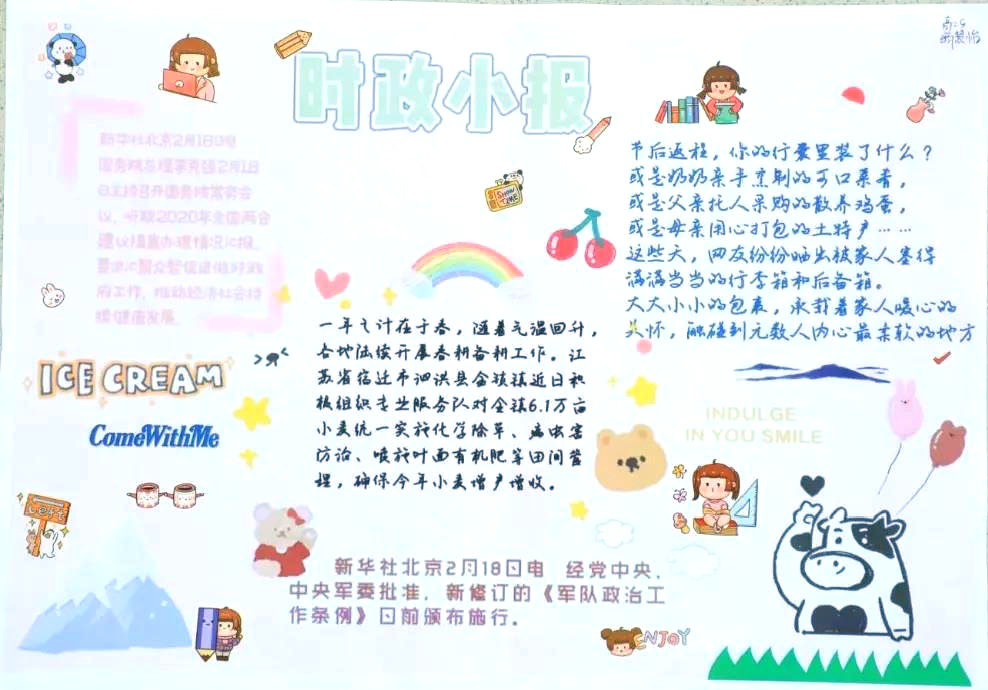 时政小报
新华社北京2月18日电
国务院总理李克强2月18
日主持召开国务院常务会
议，听取2020年全国两会
建议提案办理情况汇报，
要求汇聚众智促进做好政
府工作，推动经济社会持
续健康发展。
节后返程，你的行囊里装了什么？
或是奶奶亲手烹制的可口菜肴，
或是父亲托人采购的散养鸡蛋，
或是母亲用心打包的土特产……
这些天，网友纷纷晒出被家人塞得
满满当当的行李箱和后备箱。
大大小小的包裹，承载着家人暖心的
关怀，触碰到无数人内心最柔软的地方
SHOW
TIME
一年之计在于春，随着气温回升，
各地陆续开展春耕备耕工作。江
苏省宿迁市泗洪县金锁镇近日积
极组织专业服务队对全镇6.1万亩
小麦统一实施化学除草、病虫害
防治、喷施叶面有机肥等田间管
理，确保今年小麦增产增收。
ICE CREAM
ComeWithMe
INDULGE
IN YOU SMILE
新华社北京2月18日电 经党中央、
中央军委批准，新修订的《军队政治工
作条例》日前颁布施行。
ENJOY